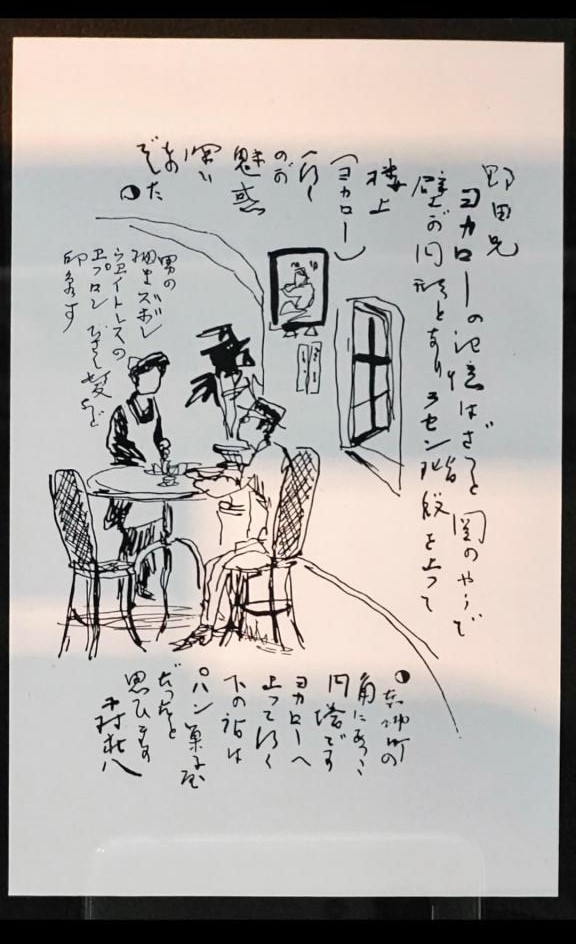 野田兄
ヨカローの記憶はざっと図のやうで
壁が円形となりラセン階段を上って
楼上
(ヨカロー)
へ行く
のが
魅惑
深い
でした
男の
細まズボン
ウエイトレスの
エプロン ひさし髪など
印象す
角にあった
円塔です
ヨカローへ
上って行く
下の詰は
パン菓子屋
だったと
思ひます
木村荘八